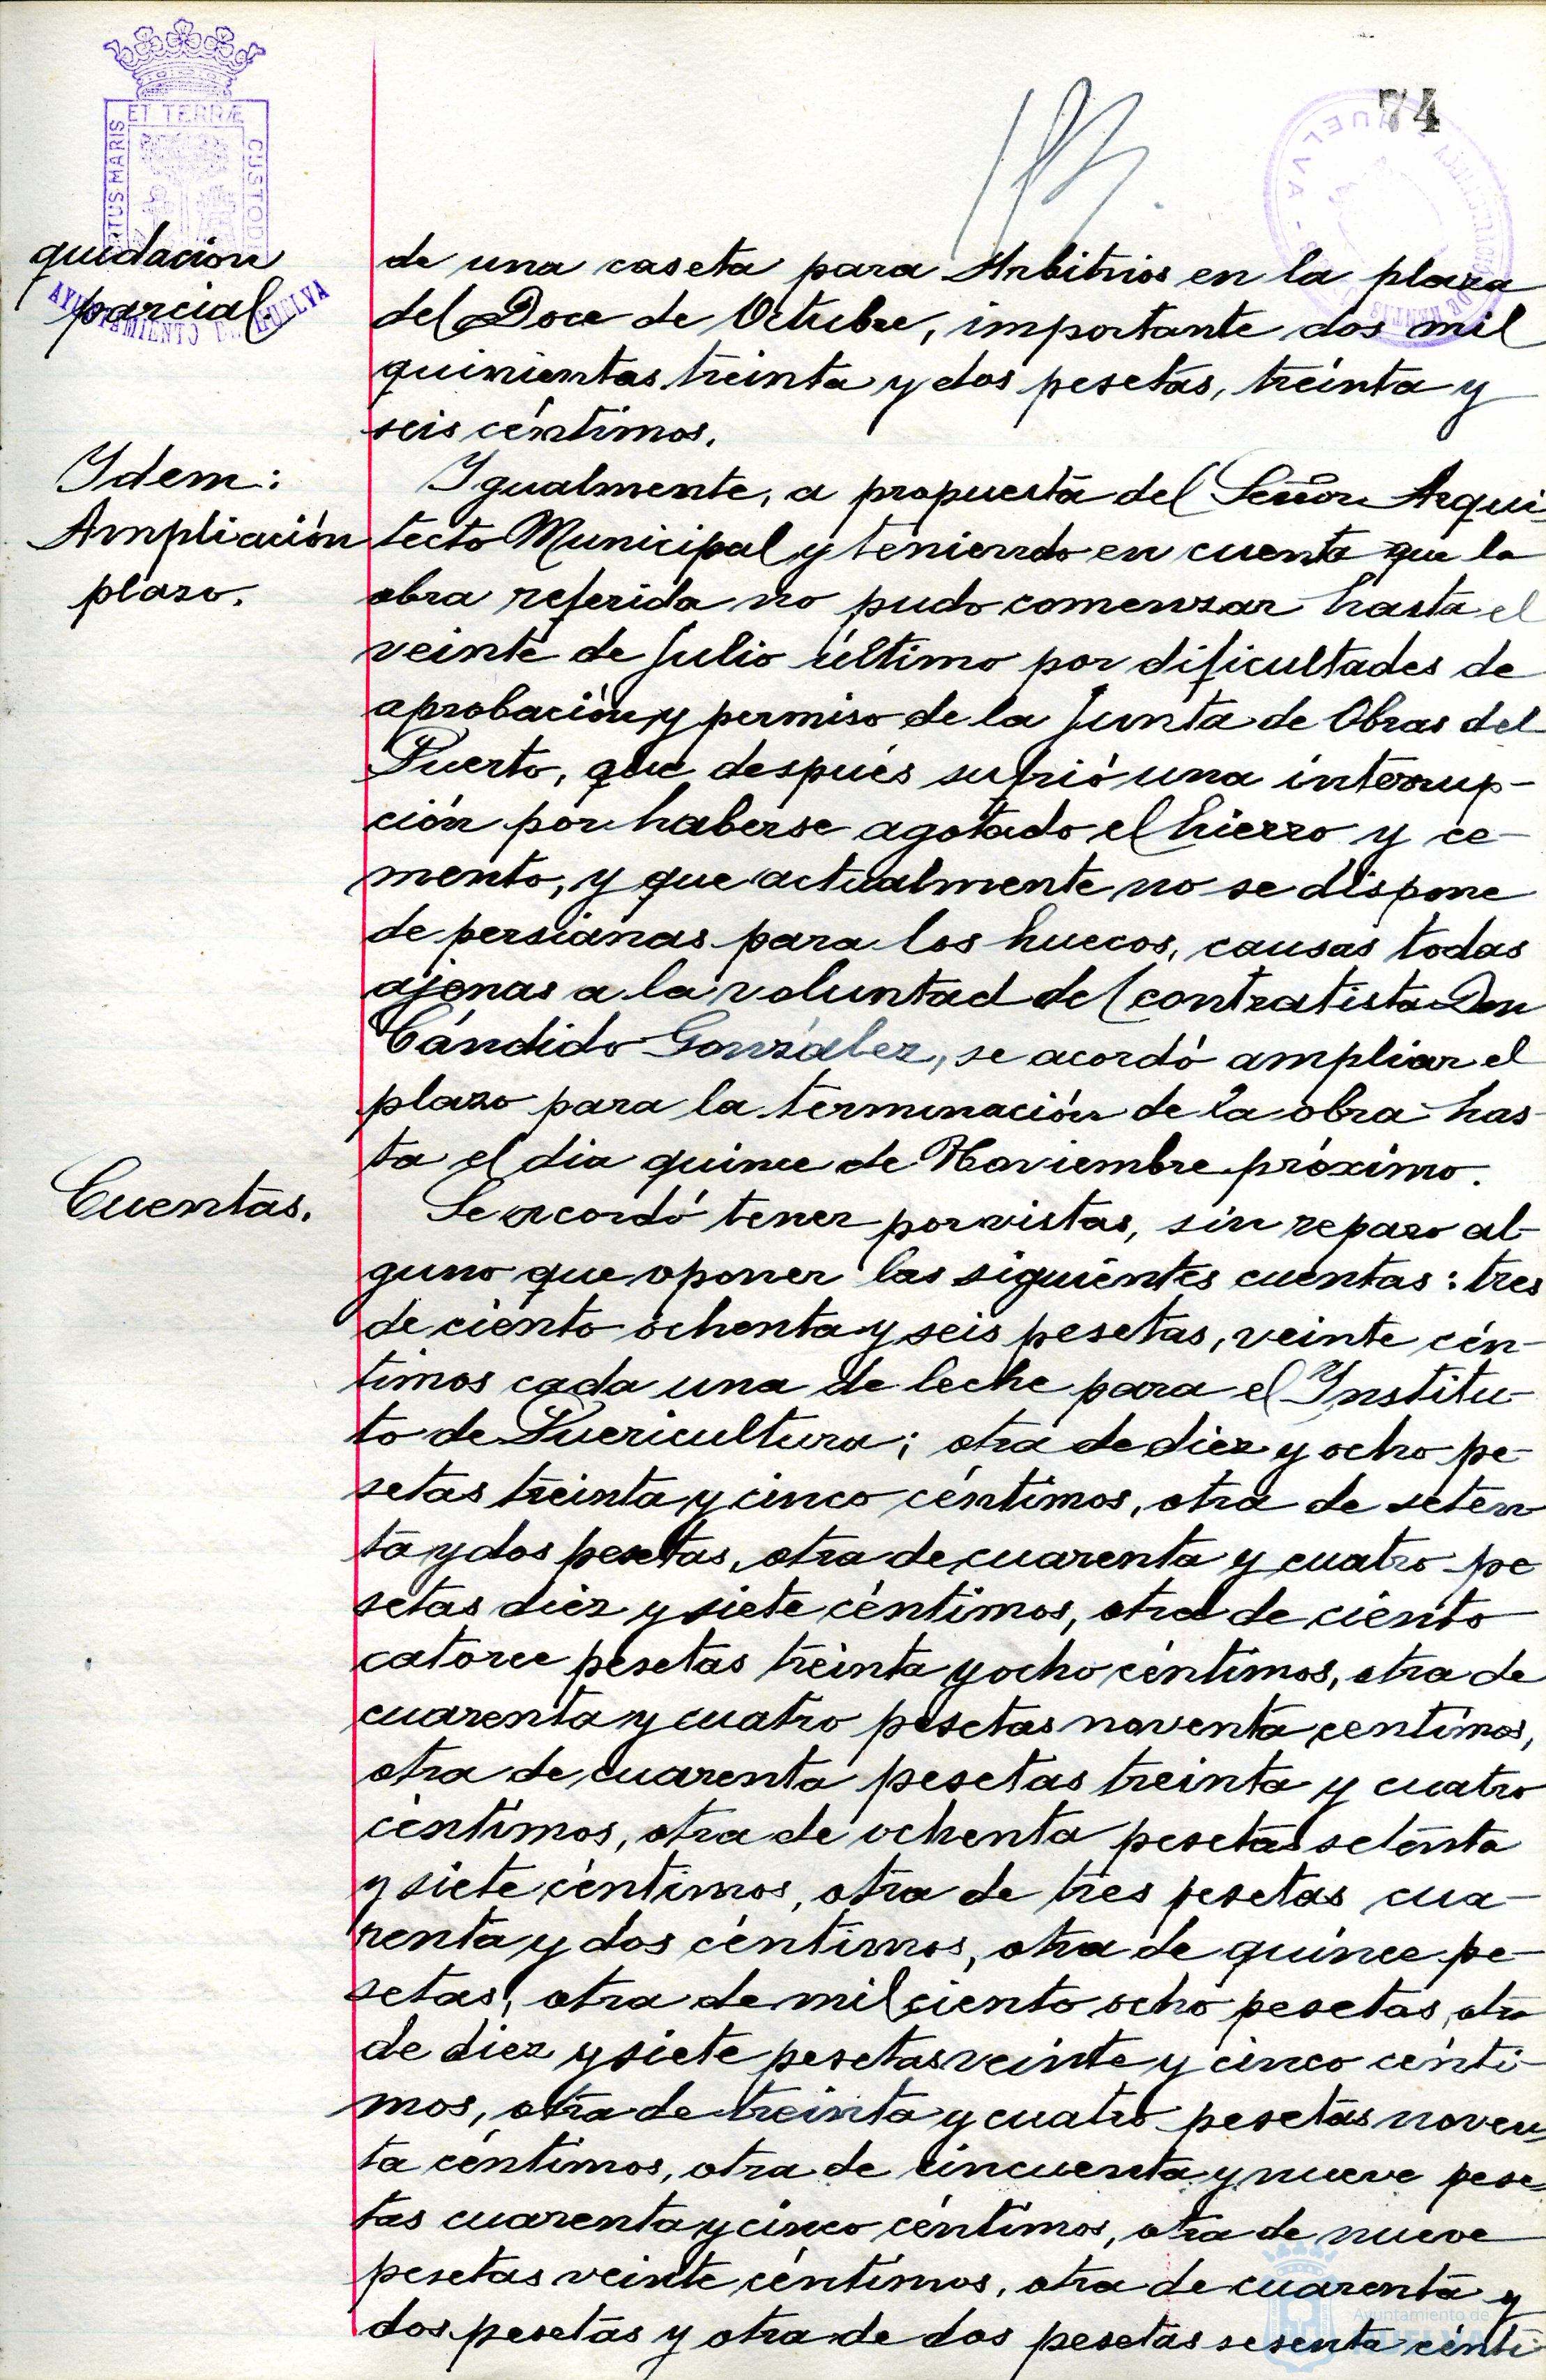 74
PORTUS MARIS ET TERRÆ CUSTODIA
AYUNTAMIENTO DE HUELVA
quidacion
parcial.
de una caseta para Arbitrios en la plaza
del Doce de Octubre, importante dos mil
quinientas treinta y dos pesetas, treinta y
seis céntimos.
Idem:
Ampliación
plazo.
Igualmente, a propuesta del Señor Arqui-
tecto Municipal y teniendo en cuenta que la
obra referida no pudo comenzar hasta el
veinte de Julio último por dificultades de
aprobación y permiso de la Junta de Obras del
Puerto, que después sufrió una interrup-
ción por haberse agotado el hierro y ce-
mento, y que actualmente no se dispone
de persianas para los huecos, causas todas
ajenas a la voluntad del contratista Don
Cándido González, se acordó ampliar el
plazo para la terminación de la obra has-
ta el dia quince de Noviembre próximo.
Cuentas.
Se acordó tener por vistas, sin reparo al-
guno que oponer las siguientes cuentas: tres
de ciento ochenta y seis pesetas, veinte cén-
timos cada una de leche para el Institu-
to de Puericultura; otra de diez y ocho pe-
setas treinta y cinco céntimos, otra de seten-
ta y dos pesetas, otra de cuarenta y cuatro pe
setas diez y siete céntimos, otra de ciento
catorce pesetas treinta y ocho céntimos, otra de
cuarenta y cuatro pesetas noventa centimos,
otra de cuarenta pesetas treinta y cuatro
céntimos, otra de ochenta pesetas setenta
y siete céntimos, otra de tres pesetas cua-
renta y dos céntimos, otra de quince pe-
setas, otra de mil ciento ocho pesetas, otra
de diez y siete pesetas veinte y cinco cénti-
mos, otra de treinta y cuatro pesetas noven-
ta céntimos, otra de cincuenta y nueve pese-
tas cuarenta y cinco céntimos, otra de nueve
pesetas veinte céntimos, otra de cuarenta y
dos pesetas y otra de dos pesetas sesenta cénti-
Ayuntamiento de
HUELVA